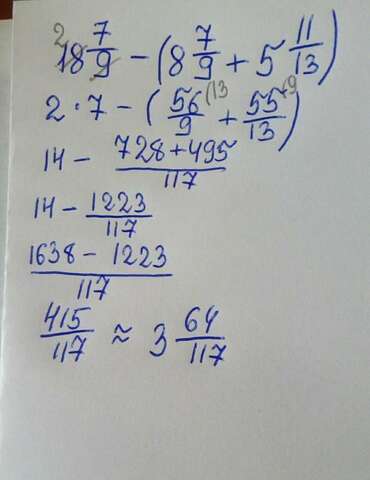 2
18 7/9 − (8 7/9 + 5 11/13)
2·7 − (56/9 (13 + 55/13 (9)
14 − (728+495)/117
14 − 1223/117
(1638 − 1223)/117
415/117 ≈ 3 64/117